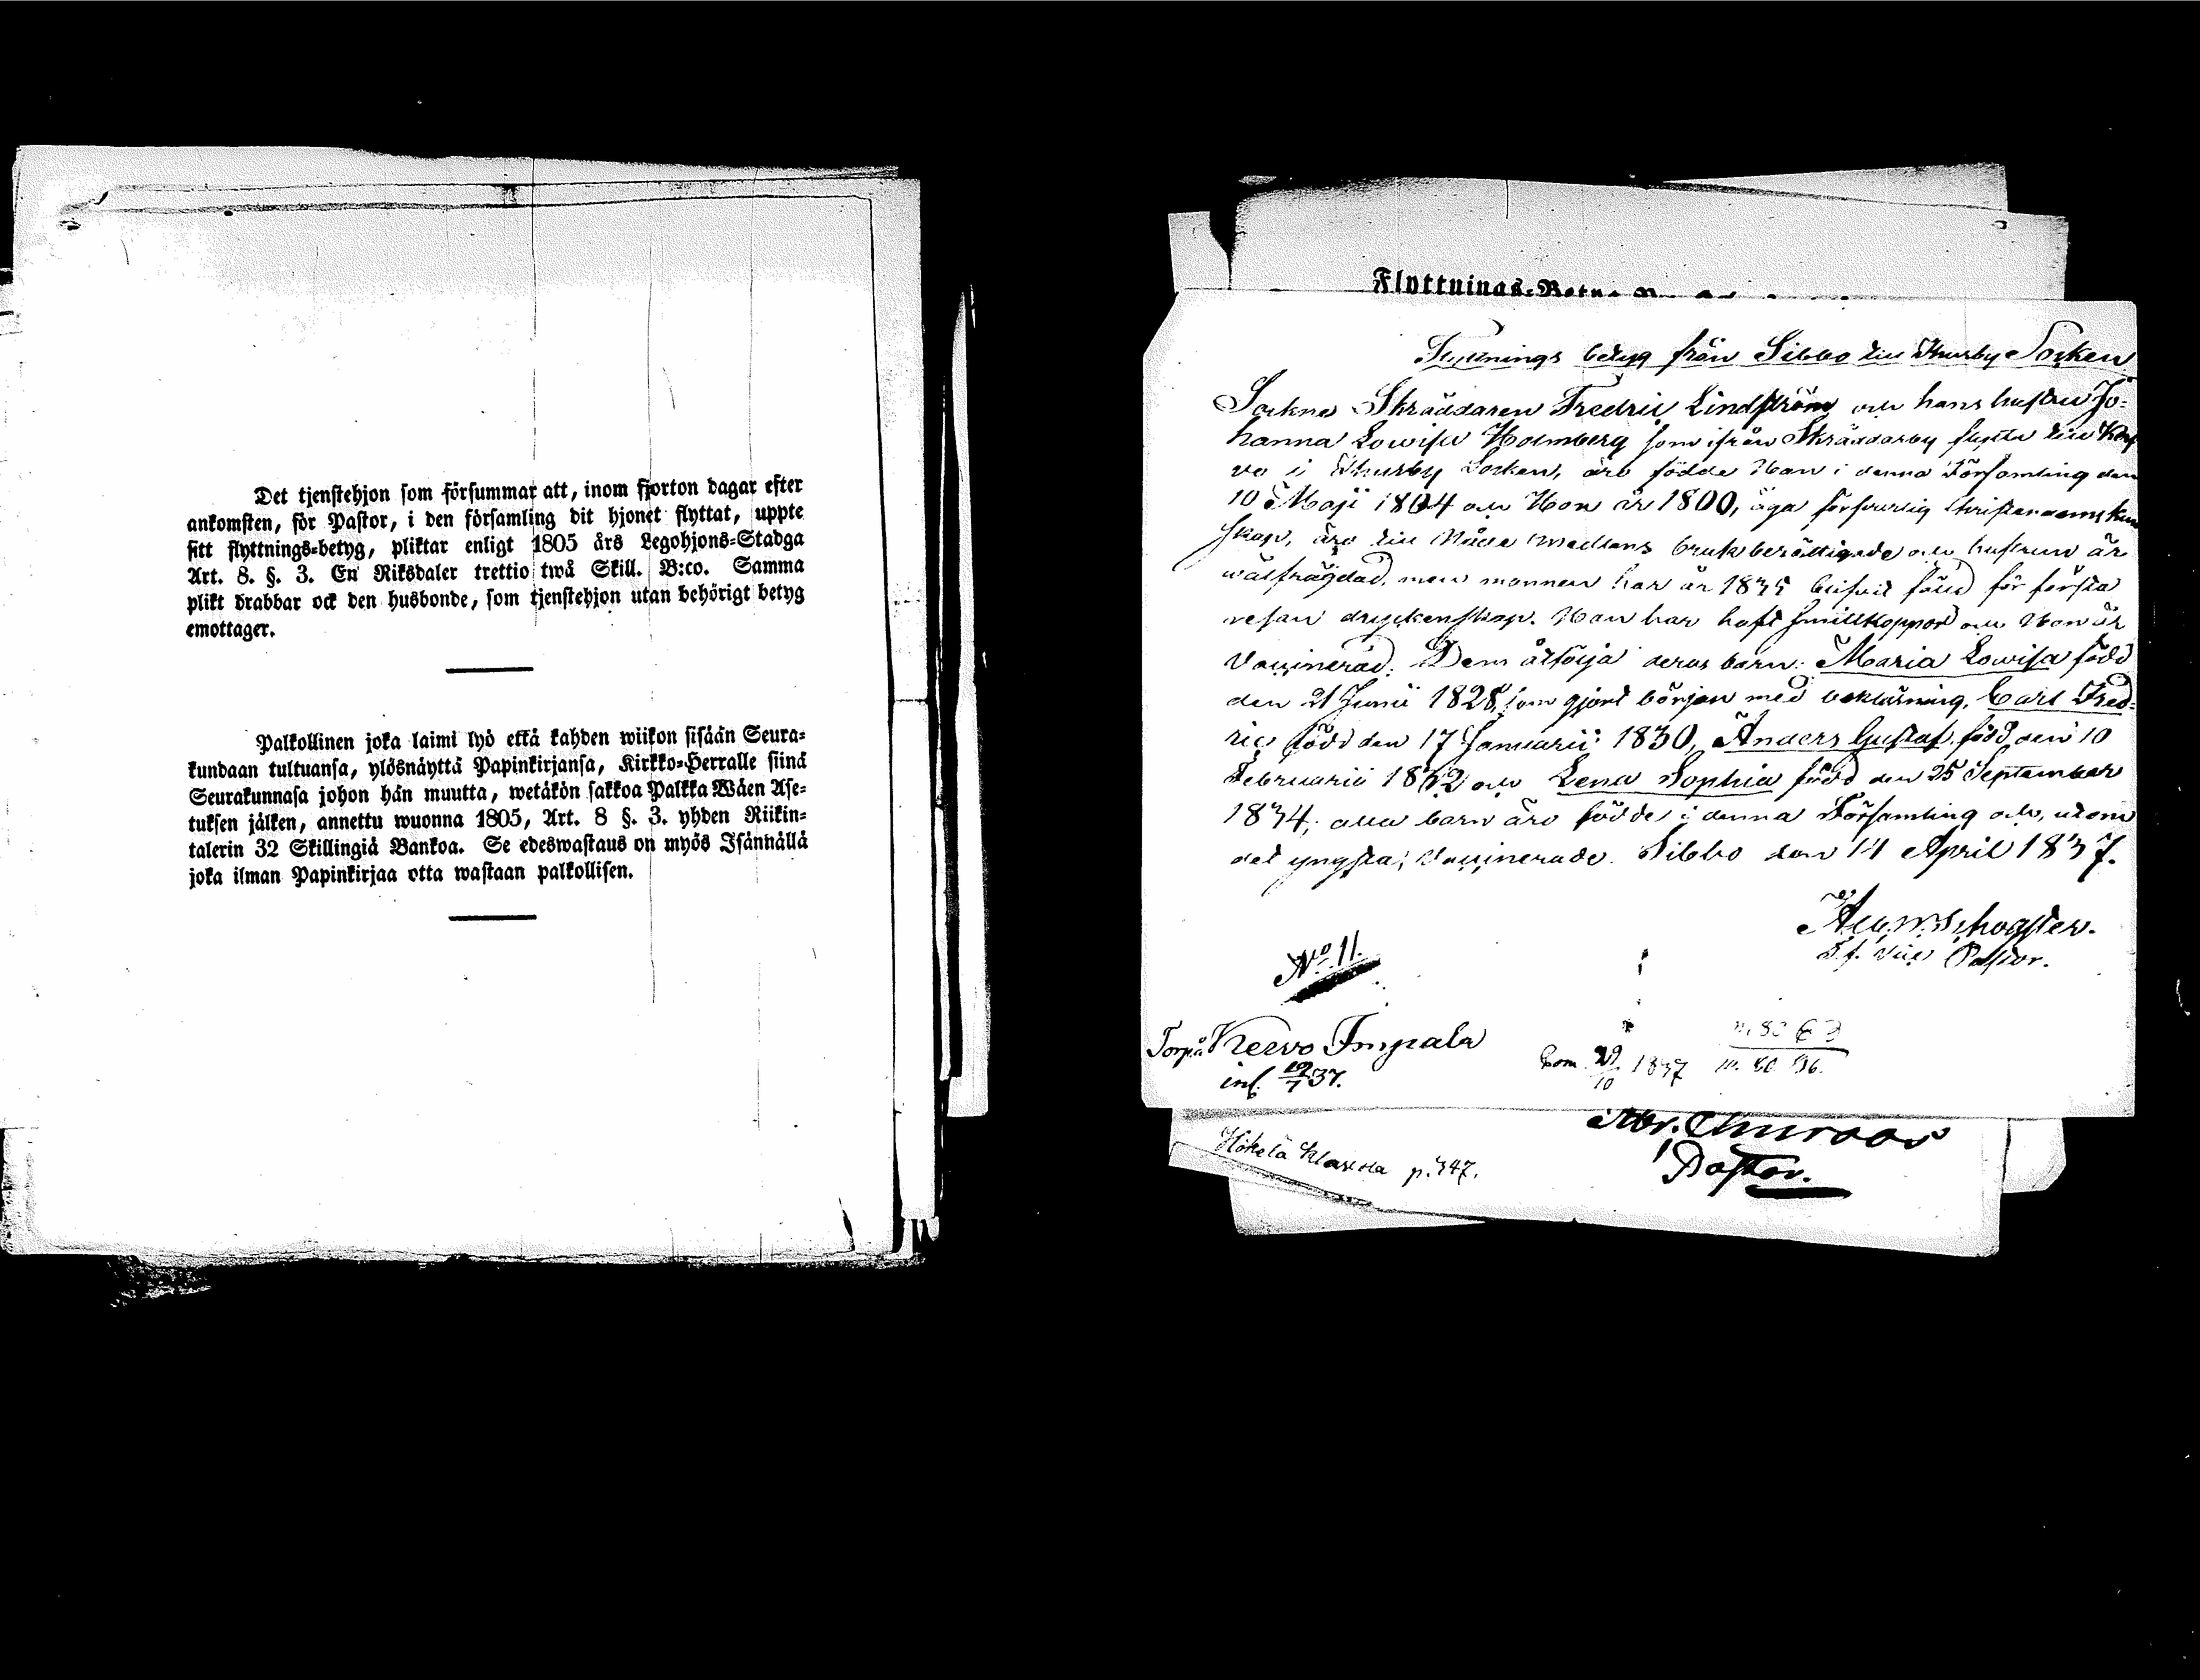 Det tjenstehjon som försummar att, inom fjorton dagar efter
ankomsten, för Pastor, i den församling dit hjonet flyttat, uppte
sitt flyttnings-betyg, pliktar enligt 1805 års Legohjons-Stadga
Art. 8. §. 3. En Riksdaler trettio twå Skill. B:co. Samma
plikt drabbar ock den husbonde, som tjenstehjon utan behörigt betyg
emottager.
Palkollinen joka laimi lyö että kahden wiikon sisään Seura-
kundaan tultuansa, ylösnäyttä Papinkirjansa, Kirkko-Herralle siinä
Seurakunnasa johon hän muutta, wetäkön sakkoa Palkka Wäen Ase-
tuksen jälken, annettu wuonna 1805, Art. 8 §. 3. yhden Riikin-
talerin 32 Skillingiä Bankoa. Se edeswastaus on myös Isännällä
joka ilman Papinkirjaa otta wastaan palkollisen.
Flyttnings-Betyg
Flyttnings betyg från Sibbo till Thusby Socken
Sockne Skräddaren Fredric Lindström och hans hustru Jo-
hanna Lowisa Holmberg som ifrån Skräddarby flytta till Ker
vo i Thusby Socken, äro födde Han i denna Församling den
10 Maji 1804 och Hon år 1800, äga försvarlig Christendoms kun
skap, äro till Nåde medlens bruk berättigade och hustrun är
wälfrägdad, men mannen har år 1835 blifvit fäld för första
resan dryckenskap. Han har haft smittkoppor och Hon är
Vaccinerad. Dem åtfölja deras barn: Maria Lowisa född
den 21 Junii 1828, som gjort början med boklärning, Carl Fred-
ric född den 17 Januarii 1830, Anders Gustaf född den 10
Februarii 1832 och Lena Sophia född den 25 September
1834; alla barn äro födde i denna Församling och, utom
det yngsta, Vaccinerade. Sibbo den 14 April 1837.
T.f. Vice Pastor.
No 11.
Torp. Kervo Impala
inf. 37.
kom 29/10 1837
Pastor.
p. 347.